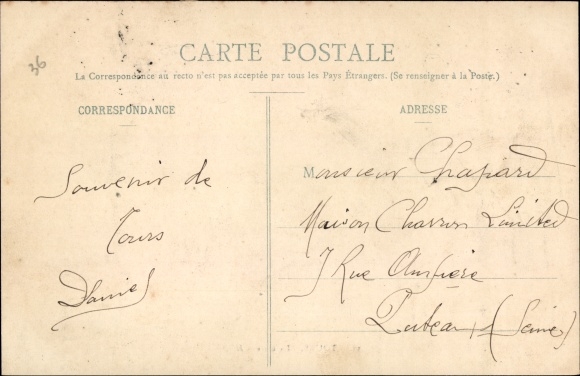 36
CARTE POSTALE
La Correspondance au recto n'est pas acceptée par tous les Pays Étrangers. (Se renseigner à la Poste.)
CORRESPONDANCE
ADRESSE
Souvenir de
Tours
Daniel
Monsieur Chapard
Maison Charron Limited
7 Rue Ampère
Puteaux (Seine)